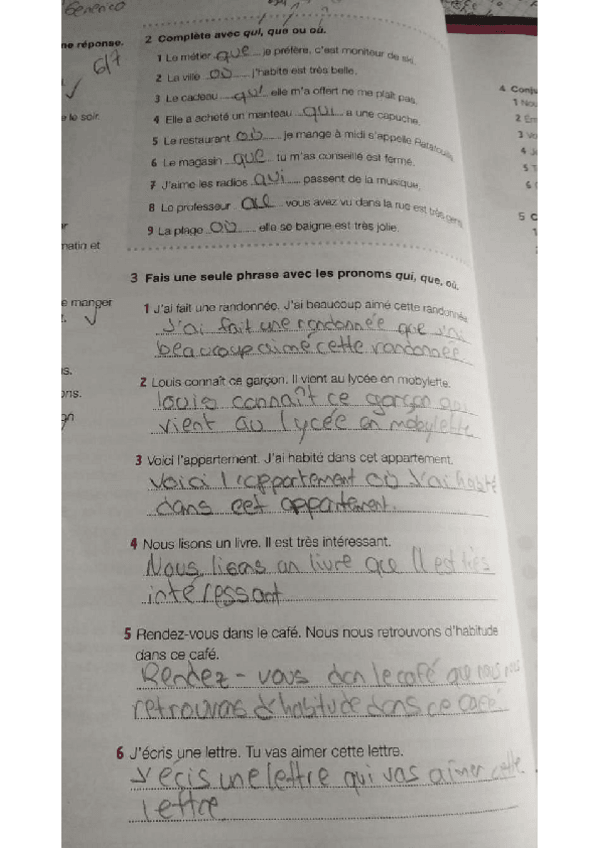 Generico
ne réponse.
6/7
e le soir.
ar
matin et
e manger
s.
ons.
gn
2 Complète avec qui, que ou où.
1 Le métier que je préfère, c'est moniteur de ski.
2 La ville où j'habite est très belle.
3 Le cadeau qui elle m'a offert ne me plaît pas.
4 Elle a acheté un manteau qui a une capuche.
5 Le restaurant où je mange à midi s'appelle
6 Le magasin que tu m'as conseillé est fermé.
7 J'aime les radios qui passent de la musique.
8 Le professeur que vous avez vu dans la rue est très
9 La plage où elle se baigne est très jolie.
3 Fais une seule phrase avec les pronoms qui, que, où.
1 J'ai fait une randonnée. J'ai beaucoup aimé cette randonnée
J'ai fait une randonnée que j'ai
beaucoup aimé cette randonnée
2 Louis connaît ce garçon. Il vient au lycée en mobylette.
louis connaît ce garçon qui
vient au lycée en mobylette
3 Voici l'appartement. J'ai habité dans cet appartement.
Voici l'appartement où J'ai habité
dans cet appartement.
4 Nous lisons un livre. Il est très intéressant.
Nous lisons un livre que Il est très
intéressant
5 Rendez-vous dans le café. Nous nous retrouvons d'habitude
dans ce café.
Rendez-vous dan le café que nous nous
retrouvons d'habitude dans ce café
6 J'écris une lettre. Tu vas aimer cette lettre.
J'ecis une lettre qui vas aimer cette
lettre
4 Conj
1 Nou
5 C